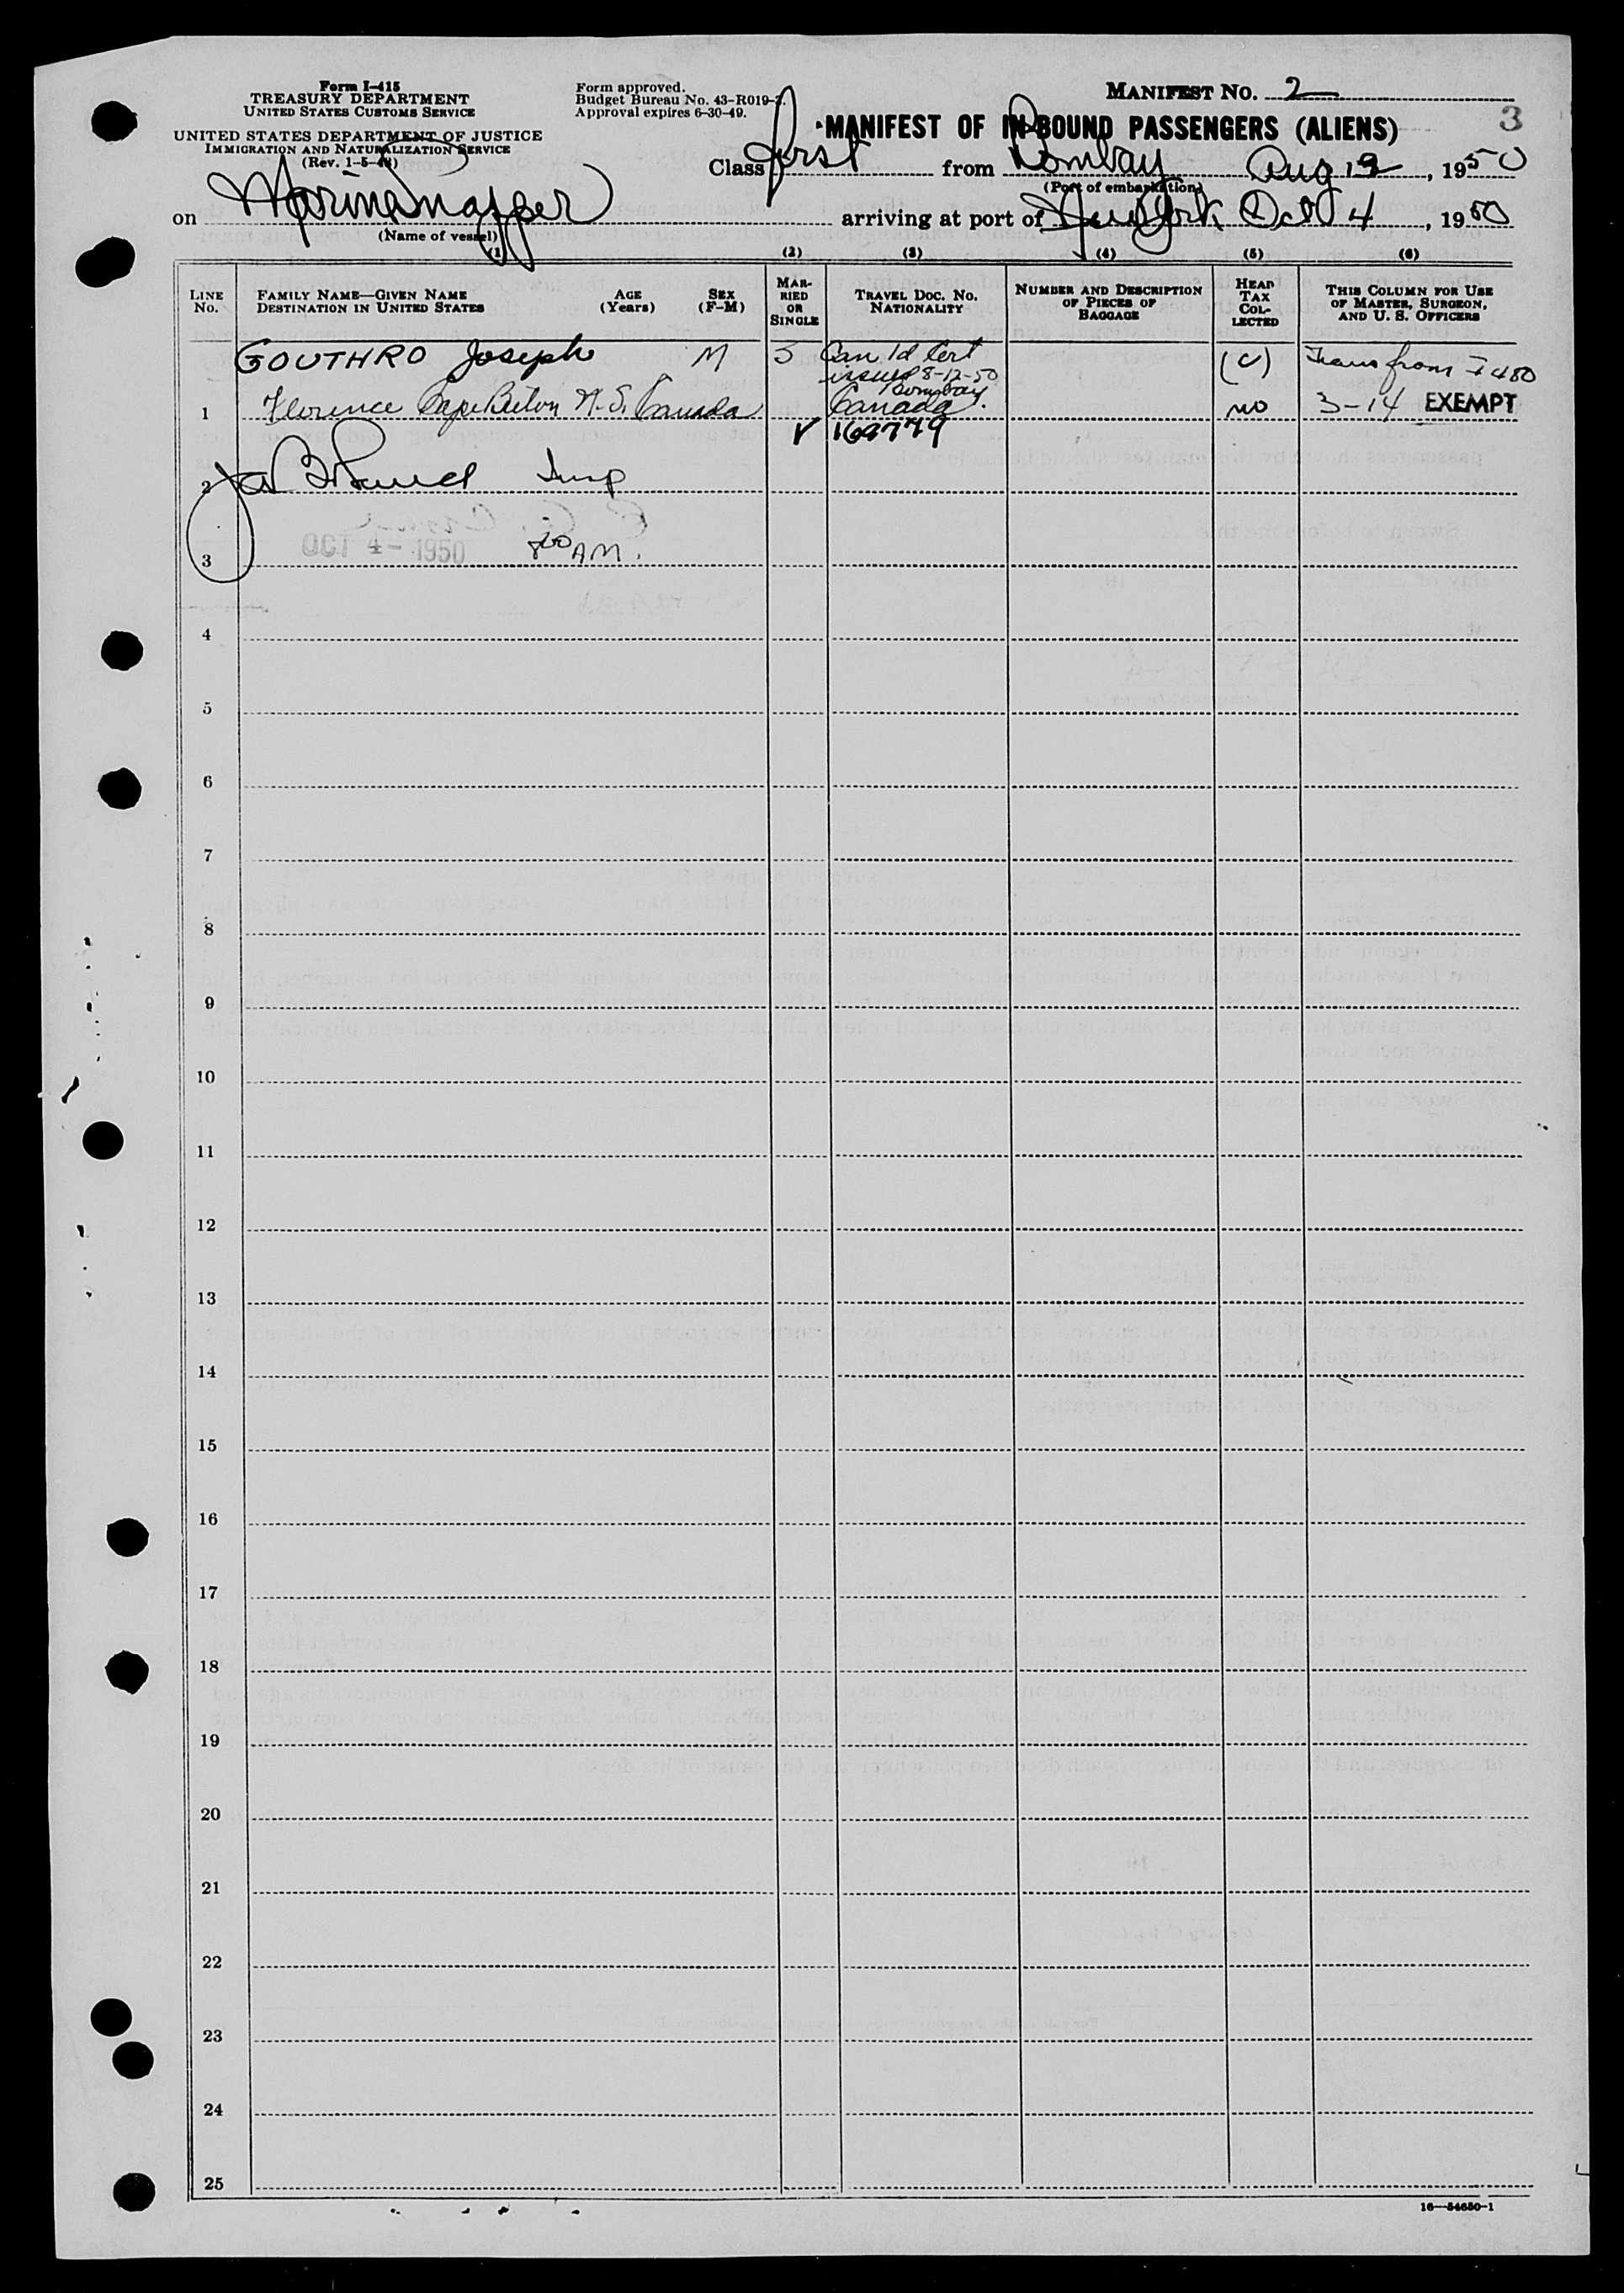 Form I-415
TREASURY DEPARTMENT
UNITED STATES CUSTOMS SERVICE
UNITED STATES DEPARTMENT OF JUSTICE
IMMIGRATION AND NATURALIZATION SERVICE
(Rev. 1-5-48)
Form approved.
Budget Bureau No. 43-R019-2.
Approval expires 6-30-49.
MANIFEST NO. 2
3
MANIFEST OF IN-BOUND PASSENGERS (ALIENS)
Class first from Bombay Aug 12, 1950
(Port of embarkation)
on Marine Snapper arriving at port of New York Oct 4, 1950
(Name of vessel)
(1) (2) (3) (4) (5) (6)
LINE No.
FAMILY NAME—GIVEN NAME
DESTINATION IN UNITED STATES
AGE (Years)
SEX (F-M)
MARRIED OR SINGLE
TRAVEL DOC. NO. NATIONALITY
NUMBER AND DESCRIPTION OF PIECES OF BAGGAGE
HEAD TAX COLLECTED
THIS COLUMN FOR USE OF MASTER, SURGEON, AND U. S. OFFICERS
GOUTHRO Joseph M S Can Id Cert Trans from I 480
issued 8-12-50
Bombay
1 Florence Cape Breton N.S. Canada Canada. NO 3-14 EXEMPT
V 169779
2 Insp
3 OCT 4- 1950 8 00 AM.
4
5
6
7
8
9
10
11
12
13
14
15
16
17
18
19
20
21
22
23
24
25
16—54650-1